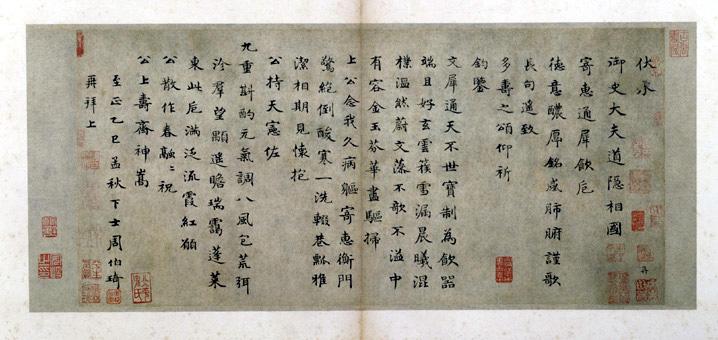 伏承
御史大夫道隱相國
寄惠通犀飲卮
德意醲厚銘感肺腑謹歌
長句遙致
多壽之頌仰祈
鈞鑒
文犀通天不世寶制為飲器
端且好玄雲簇雪漏晨曦混
樸溫然蔚文藻不歌不溢中
有容金玉芬華盡驅掃
上公念我久病軀寄惠衡門
驚絕倒酸寒一洗輟巷瓢雅
潔相期見懷抱
公持天憲佐
九重斟酌元氣調八風包荒弭
沴羣望顒遙瞻瑞靄蓬萊
東此卮滿泛流霞紅願
公散作春融〻祝
公上壽齊神嵩
至正乙巳孟秋下士周伯琦
再拜上